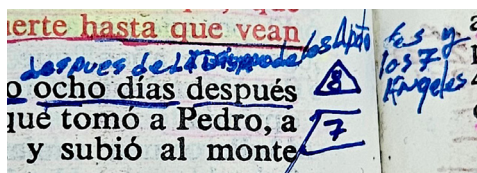 uerte hasta que vean
despues de los Apos
o ocho días después
que tomó a Pedro, a
y subió al monte
8
7
tes y
los 7
Angeles